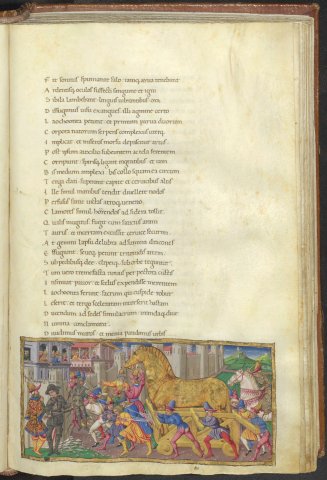 F it sonitus spumante salo iamq; arua tenebant
A rdentesq; oculos suffecti sanguine et igni
S ibila lambebant linguis uibrantibus ora
D iffugimus uisu exangues illi agmine certo
L aocoonta petunt et primum parua duorum
C orpora natorum serpens complexus uterq;
I mplicat et miseros morsu depascitur artus
P ost ipsum auxilio subeuntem ac tela ferentem
C orripiunt spirisq; ligant ingentibus et iam
B is medium amplexi bis collo squamea circum
T erga dati superant capite et ceruicibus altis
I lle simul manibus tendit diuellere nodos
P erfusus sanie uittas atroq; ueneno
C lamores simul horrendos ad sidera tollit
Q ualis mugitus fugit cum saucius aram
T aurus et incertam excussit ceruice securim
A t gemini lapsu delubra ad summa dracones
E ffugiunt seueq; petunt tritonidis arcem
S ub pedibusq; dee clipeiq; sub orbe teguntur
T um uero tremefacta nouus per pectora cunctis
I nsinuat pauor et scelus expendisse merentem
L aocoonta ferunt sacrum qui cuspide robur
L eserit et tergo sceleratam intorserit hastam
D ucendum ad sedes simulacrum orandaq; diue
N umina conclamant
D iuidimus muros et menia pandimus urbis